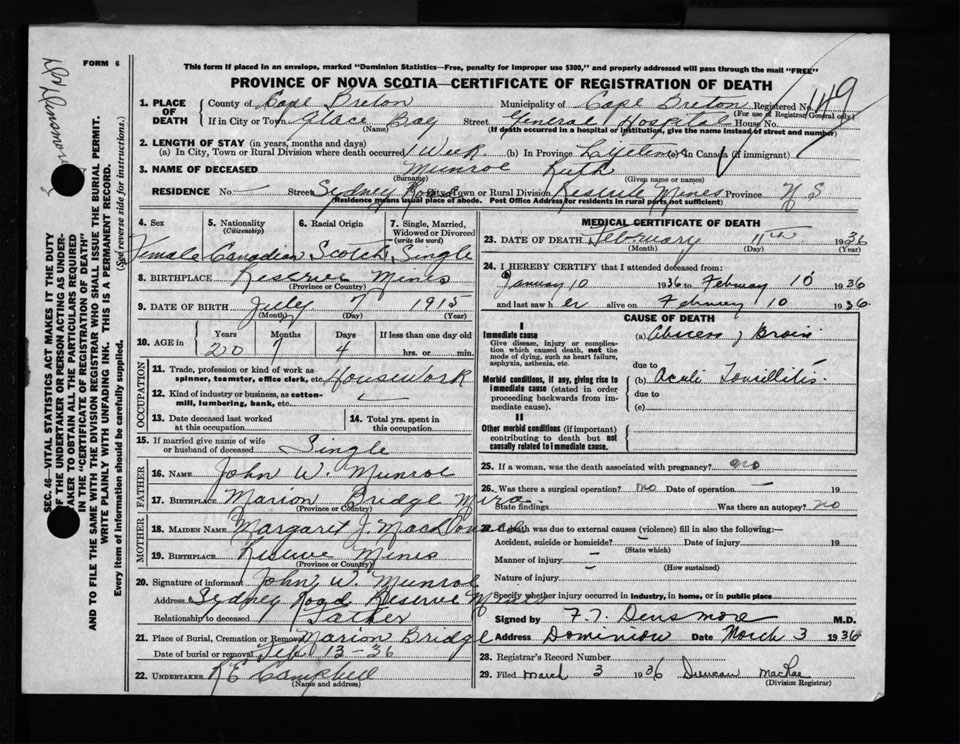 FORM 6
This form if placed in an envelope, marked "Dominion Statistics—Free, penalty for improper use $300," and properly addressed will pass through the mail "FREE"
PROVINCE OF NOVA SCOTIA—CERTIFICATE OF REGISTRATION OF DEATH
1. PLACE OF DEATH
County of Cape Breton Municipality of Cape Breton Registered No.
(For use of Registrar General only)
If in City or Town Glace Bay Street General Hospital House No.
(Name) (If death occurred in a hospital or institution, give the name instead of street and number)
2. LENGTH OF STAY (in years, months and days)
(a) In City, Town or Rural Division where death occurred 1 Week (b) In Province Lifetime (c) in Canada (if immigrant)
3. NAME OF DECEASED Munroe Ruth
(Surname) (Given name or names)
RESIDENCE No. — Street Sydney Road City, Town or Rural Division Reserve Mines Province N S
(Residence means usual place of abode. Post Office Address for residents in rural parts not sufficient)
4. Sex 5. Nationality (Citizenship) 6. Racial Origin 7. Single, Married, Widowed or Divorced (write the word)
Female Canadian Scotch Single
8. BIRTHPLACE Reserve Mines
(Province or Country)
9. DATE OF BIRTH July 7 1915
(Month) (Day) (Year)
10. AGE in Years Months Days If less than one day old
20 7 4 hrs. or min.
OCCUPATION
11. Trade, profession or kind of work as spinner, teamster, office clerk, etc. Housework
12. Kind of industry or business, as cotton-mill, lumbering, bank, etc. —
13. Date deceased last worked at this occupation
14. Total yrs. spent in this occupation
15. If married give name of wife or husband of deceased Single
FATHER
16. NAME John W. Munroe
17. BIRTHPLACE Marion Bridge Mira
(Province or Country)
MOTHER
18. MAIDEN NAME Margaret J. MacDonald
19. BIRTHPLACE Reserve Mines
(Province or Country)
20. Signature of informant John W. Munroe
Address Sydney Road Reserve Mines
Relationship to deceased Father
21. Place of Burial, Cremation or Removal Marion Bridge
Date of burial or removal Feb 13-36
22. UNDERTAKER R E Campbell
(Name and address)
MEDICAL CERTIFICATE OF DEATH
23. DATE OF DEATH February 11th 1936
(Month) (Day) (Year)
24. I HEREBY CERTIFY that I attended deceased from:
January 10 1936 to February 10 1936
and last saw her alive on February 10 1936.
CAUSE OF DEATH
I
Immediate cause
Give disease, injury or complication which caused death, not the mode of dying, such as heart failure, asphyxia, asthenia, etc.
(a) Abscess of Brain
due to
Morbid conditions, if any, giving rise to immediate cause (stated in order proceeding backwards from immediate cause).
(b) Acute Tonsillitis
due to
(c)
II
Other morbid conditions (if important) contributing to death but not causally related to immediate cause.
25. If a woman, was the death associated with pregnancy? no
26. Was there a surgical operation? no Date of operation — 19
State findings Was there an autopsy? no
27. If death was due to external causes (violence) fill in also the following:—
Accident, suicide or homicide? — Date of injury 19
(State which)
Manner of injury —
(How sustained)
Nature of injury —
Specify whether injury occurred in industry, in home, or in public place
Signed by F. T. Densmore M.D.
Address Dominion Date March 3 1936
28. Registrar's Record Number
29. Filed March 3 1936 Duncan MacRae
(Division Registrar)
SEC. 46—VITAL STATISTICS ACT MAKES IT THE DUTY OF THE UNDERTAKER OR PERSON ACTING AS UNDERTAKER TO OBTAIN ALL THE PARTICULARS REQUIRED IN THE "CERTIFICATE OF REGISTRATION OF DEATH"
AND TO FILE THE SAME WITH THE DIVISION REGISTRAR WHO SHALL ISSUE THE BURIAL PERMIT.
WRITE PLAINLY WITH UNFADING INK. THIS IS A PERMANENT RECORD.
Every item of information should be carefully supplied. (See reverse side for instructions.)